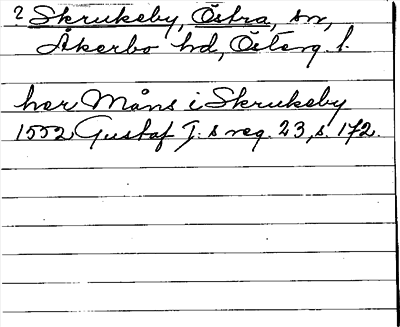 ? Skrukeby, Östra, sn,
Åkerbo hd, Österg. l.
her Måns i Skrukeby
1552 Gustaf I:s reg. 23, s. 172.